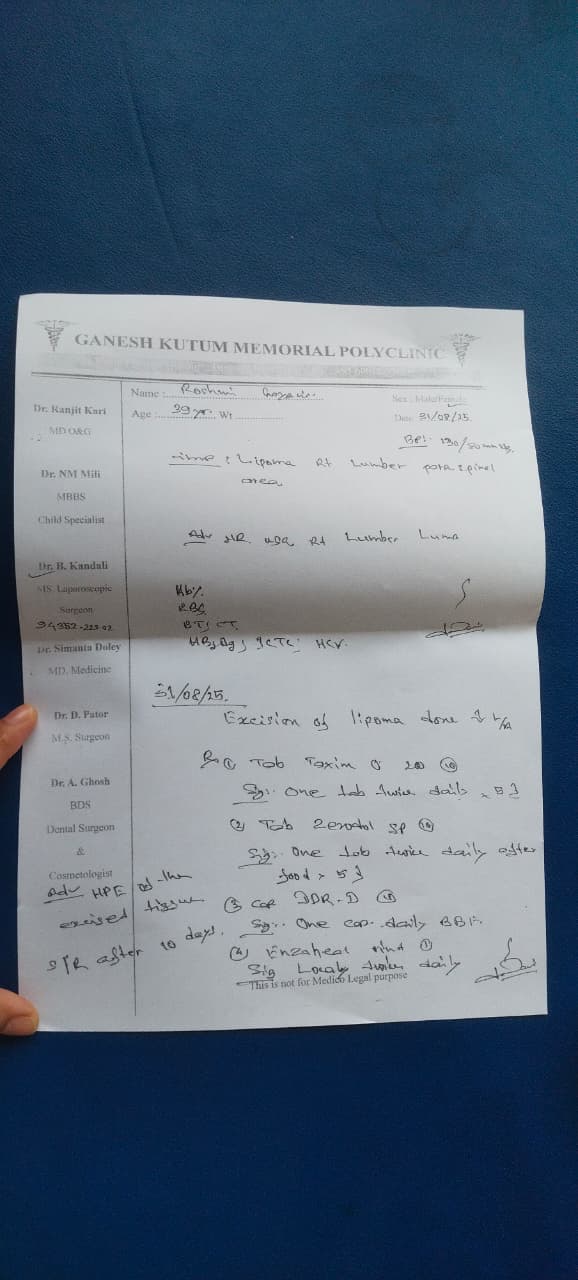 GANESH KUTUM MEMORIAL POLYCLINIC
Name :
Sex : Male/Female
Age : 39 yr. Wt
Date: 31/08/25.
Dr. Ranjit Kari
MD O&G
Dr. NM Mili
MBBS
Child Specialist
Dr. B. Kandali
MS. Laparoscopic
Surgeon
Dr. Simanta Doley
MD. Medicine
Dr. D. Pator
M.S. Surgeon
Dr. A. Ghosh
BDS
Dental Surgeon
&
Cosmetologist
Lipoma Rt Lumber para spinal
area
Adv Rt Lumber
Hb%
RBS
BT, CT
HBsAg, HCV.
31/08/25.
Excision of lipoma done
① Tab Taxim O 200 ⑩
Sig:. One tab twice daily
② Tab Zerodol SP ⑩
Sig:. One tab twice daily after
food
③ Cap DDR.D
Sig:. One cap. daily BBF.
④ Enzaheal ①
Sig Locally twice daily
Adv HPE of the
excised tissue
S/R after 10 days.
This is not for Medico Legal purpose